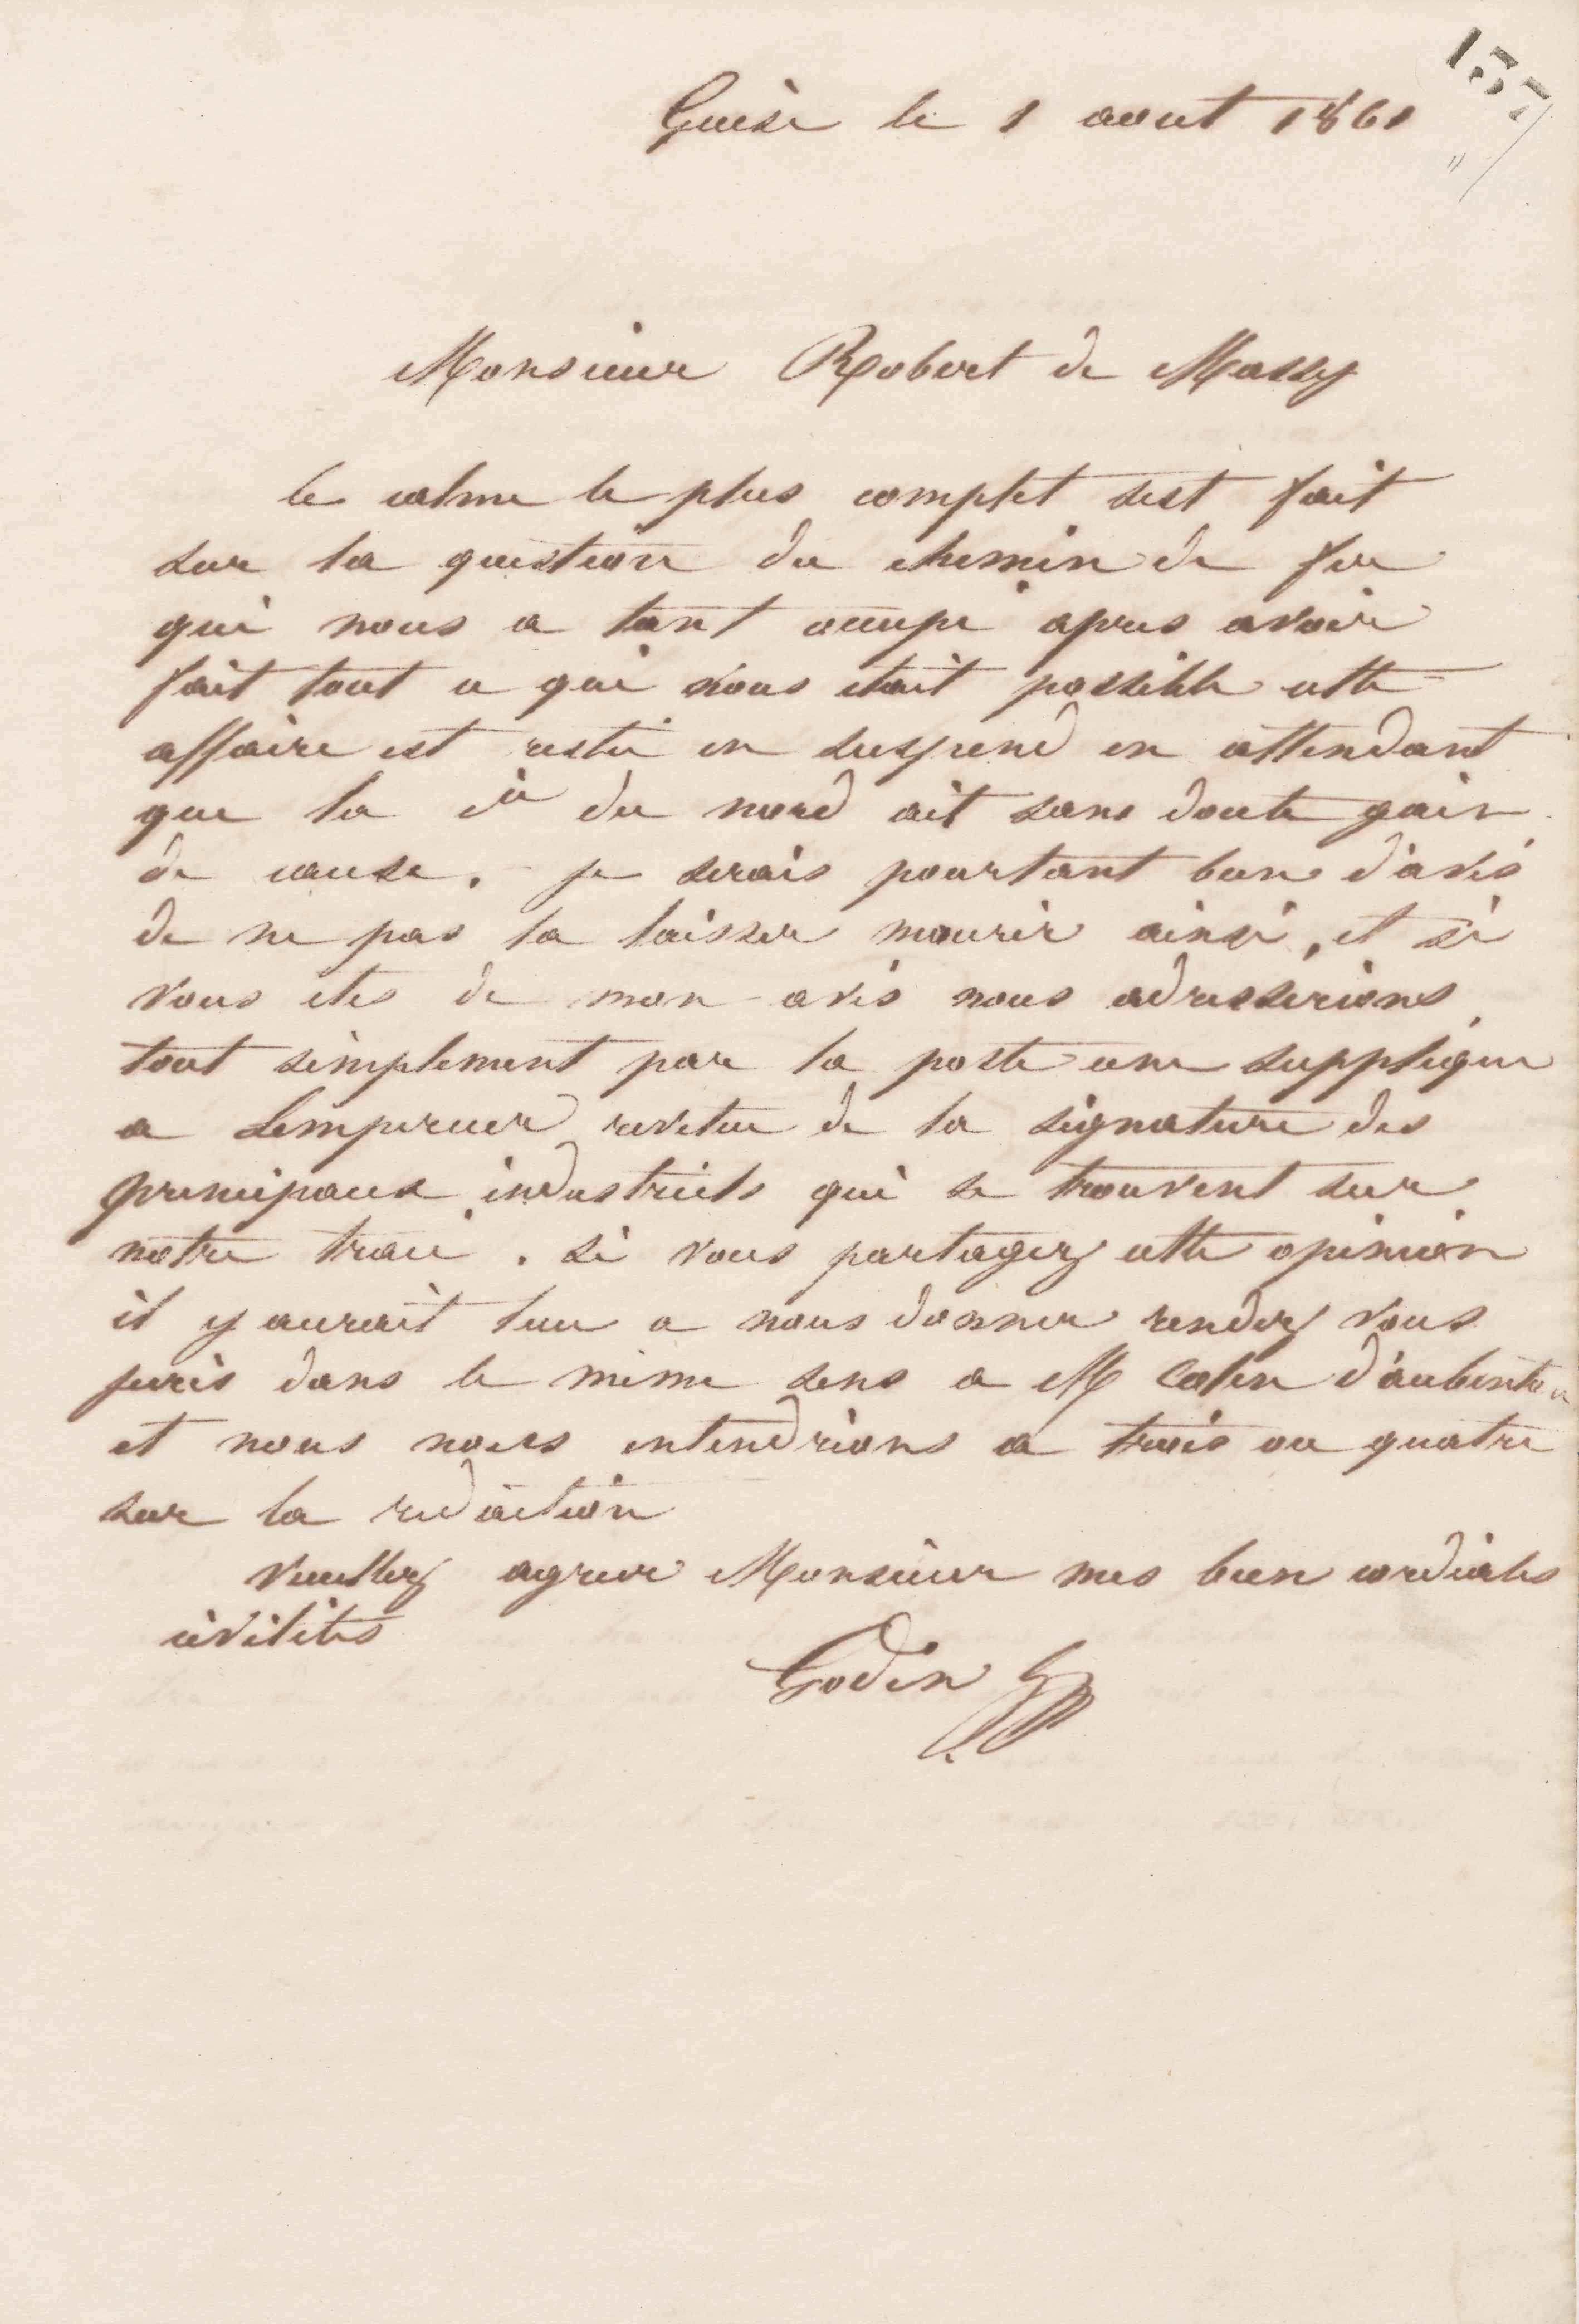 157
Guise le 1 aout 1861
Monsieur Robert de Massy
le calme le plus complet sest fait
sur la question du chemin de fer
qui nous a tant occupé apres avoir
fait tout ce qui nous etait possible cette
affaire est resté en suspend en attendant
que la cie du nord ait sans doute gain
de cause. je serais pourtant bien d'avis
de ne pas la laisser mourir ainsi, et si
vous etes de mon avis nous adresserions
tout simplement par la poste une supplique
a Lempereur revetue de la signature des
principaux industriels qui se trouvent sur
notre tracé. si vous partagez cette opinion
il y aurait lieu a nous donner rendez vous
jecris dans le même sens a M Colin d'aubenton
et nous nous entendrions a trois ou quatre
sur la redaction
veuillez agreer Monsieur mes bien cordiales
civilités
Godin